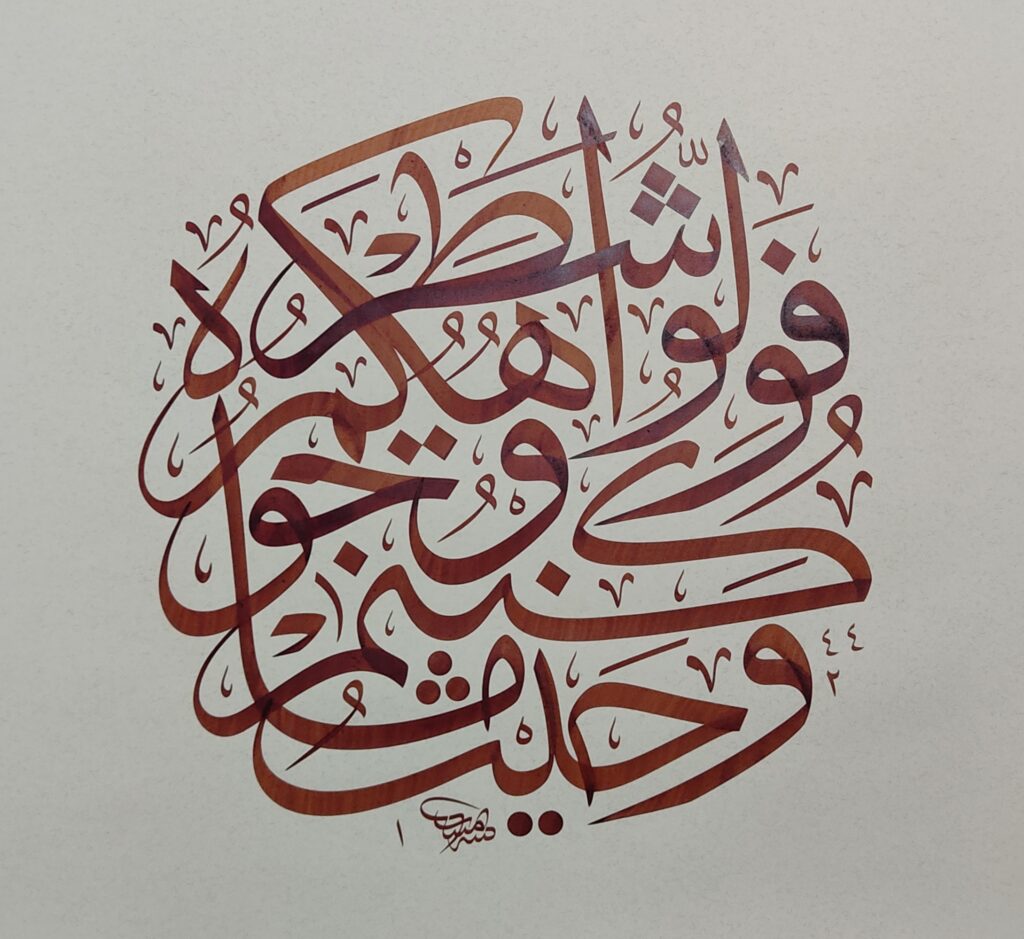 وَحَيْثُ مَا كُنْتُمْ
فَوَلُّوا وُجُوهَكُمْ شَطْرَهُ
٤٤
٢
١